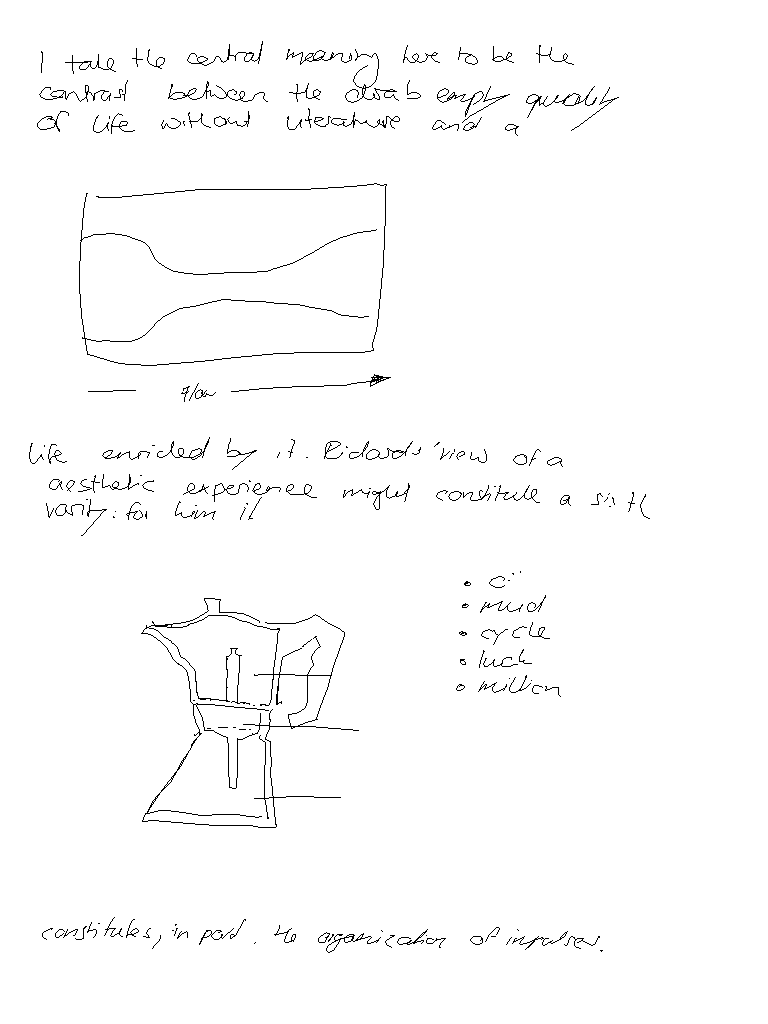 I take the central meaning here to be the
contrast between the drab empty quality
of life without literature and a
Flow
life enriched by it. Richards' view of a
aesthetic experience might constitute a sixth
varity: for him it
• mud
• cycle
• luck
• million
constitutes, in part, the organization of impulses.